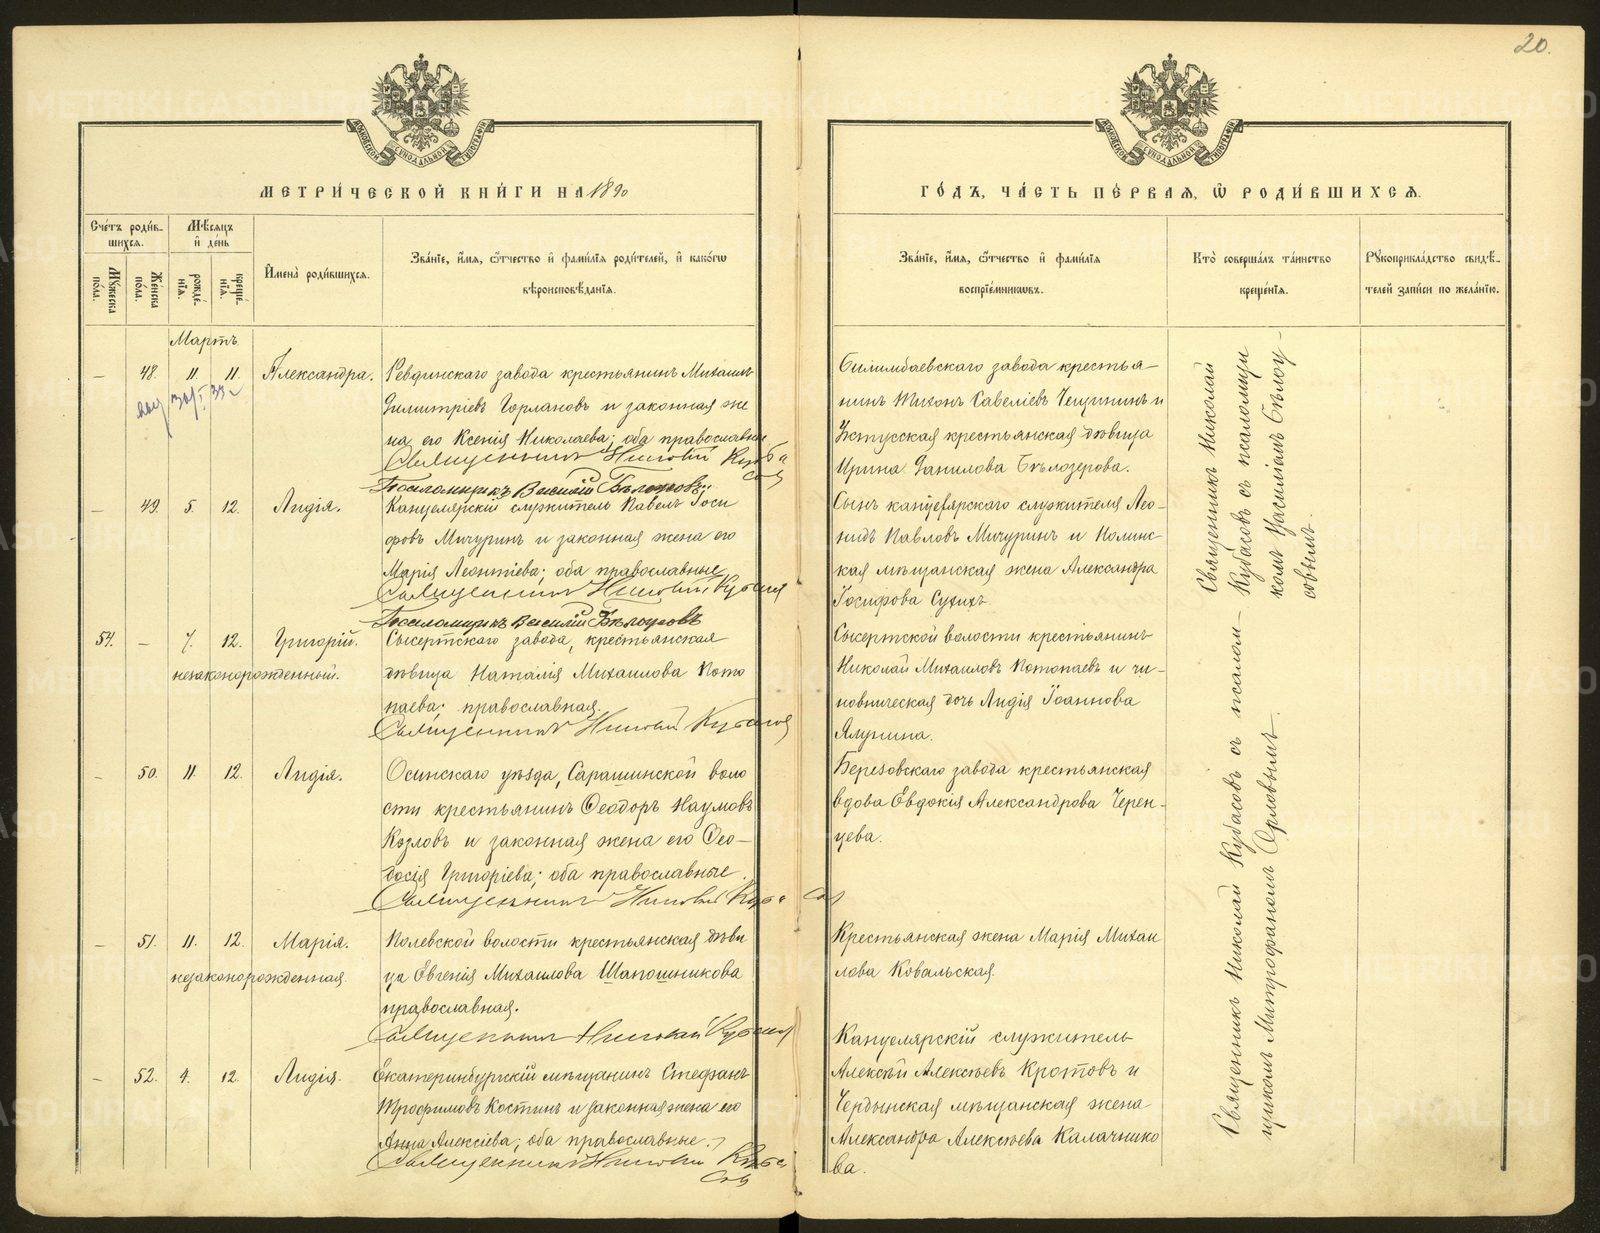 20.
МОСКОВСКОЙ СѴНОДАЛЬНОЙ ТИПОГРАФІИ
МОСКОВСКОЙ СѴНОДАЛЬНОЙ ТИПОГРАФІИ
МЕТРИ́ЧЕСКОЙ КНИ́ГИ НА 1890
ГО́ДЪ, ЧА́СТЬ ПЕ́РВАЯ, Ѡ҆ РОДИ́ВШИХСЯ.
Сче́тъ роди́в-
шихся.
Мѣ́сяцъ
и҆ де́нь
Мꙋ́жеска
по́ла.
Же́нска
по́ла.
рожде́-
нїя.
креще́-
нїя.
И҆мена̀ роди́вшихся.
Зва́нїе, и҆́мя, ѻ҆́тчество и҆ фами́лїя роди́телей, и҆ како́гѡ
вѣроисповѣ́данїя.
Зва́нїе, и҆́мя, ѻ҆́тчество и҆ фами́лїя
воспрїе́мникѡвъ.
Кто̀ соверша́лъ та́инство
креще́нїя.
Рꙋкоприкла́дство свидѣ́-
телей за́писи по жела́нїю.
Мартъ
– 48. 11. 11. Александра.
Ревдинскаго завода крестьянинъ Михаилъ
Димитріевъ Горлановъ и законная же
на его Ксенія Николаева; оба православные
Священникъ Николай Кубасовъ
Псаломщикъ Василій Бѣлоусовъ
Билимбаевскаго завода крестья-
нинъ Тихонъ Савеліевъ Чещининъ и
Уктусская крестьянская дѣвица
Ирина Данилова Бѣлозерова.
– 49. 5. 12. Лидія.
Канцелярскій служитель Павелъ Іоси
фовъ Мичуринъ и законная жена его
Марія Леонтіева; оба православные
Священникъ Николай Кубасовъ
Псаломщикъ Василій Бѣлоусовъ
Сынъ канцелярскаго служителя Лео-
нидъ Павловъ Мичуринъ и Нолинс-
кая мѣщанская жена Александра
Іосифова Сухихъ
54. – 7. 12. Григорій.
незаконорожденный.
Сысертскаго завода, крестьянская
дѣвица Наталія Михаилова Пото
паева; православная.
Священникъ Николай Кубасовъ
Сысертской волости крестьянинъ
Николай Михаиловъ Потопаевъ и чи-
новническая дочь Лидія Іоаннова
Ялунина.
– 50. 11. 12. Лидія.
Осинскаго уѣзда, Сарашинской воло
сти крестьянинъ Ѳеодоръ Наумовъ
Козловъ и законная жена его Ѳео-
досія Григоріева; оба православные.
Священникъ Николай Кубасовъ
Березовскаго завода крестьянская
вдова Евдокія Александрова Черен-
цева.
– 51. 11. 12. Марія.
незаконорожденная.
Полевской волости крестьянская дѣви
ца Евгенія Михаилова Шапошникова
православная.
Священникъ Николай Кубасовъ
Крестьянская жена Марія Михаи
лова Ковальская.
– 52. 4. 12. Лидія.
Екатеринбургскій мѣщанинъ Стефанъ
Трофимовъ Костинъ и законная жена его
Анна Алексіева; оба православные.
Священникъ Николай Кубасовъ
Канцелярскій служитель
Алексѣй Алексѣевъ Кротовъ и
Чердынская мѣщанская жена
Александра Алексѣева Калачнико
ва.
Священникъ Николай
Кубасовъ съ псаломщи
комъ Василіемъ Бѣлоу-
совымъ.
Священникъ Николай Кубасовъ съ псалом-
щикомъ Митрофаномъ Орловымъ.